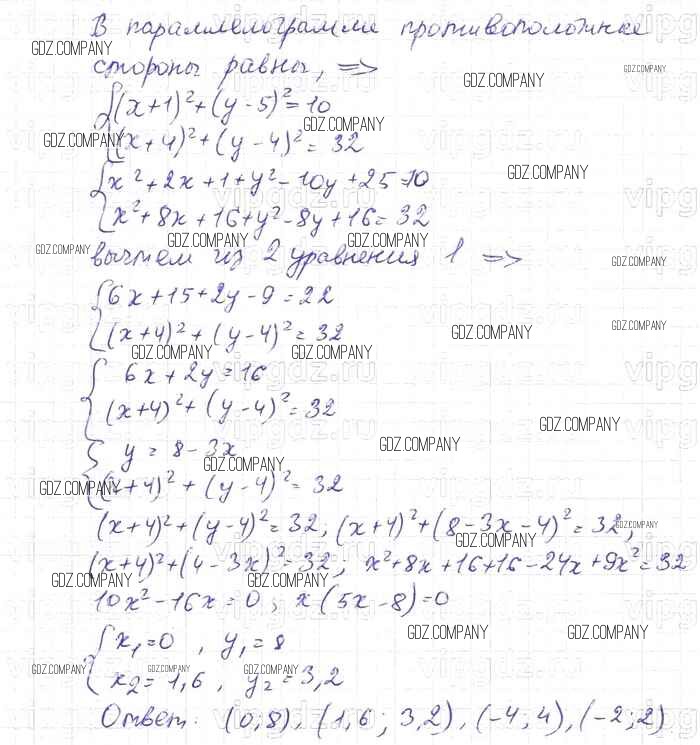 В параллелограмме противоположные
GDZ.COMPANY GDZ.COMPANY
стороны равны, =>
GDZ.COMPANY
{(x+1)²+(y-5)²=10
GDZ.COMPANY
GDZ.COMPANY
{(x+4)²+(y-4)²=32
{x²+2x+1+y²-10y+25=10
GDZ.COMPANY
{x²+8x+16+y²-8y+16=32
GDZ.COMPANY GDZ.COMPANY
GDZ.COMPANY GDZ.COMPANY
вычтем из 2 уравнения 1 =>
{6x+15+2y-9=22
GDZ.COMPANY GDZ.COMPANY
{(x+4)²+(y-4)²=32
GDZ.COMPANY GDZ.COMPANY
{6x+2y=16
{(x+4)²+(y-4)²=32
GDZ.COMPANY
GDZ.COMPANY
{y=8-3x
GDZ.COMPANY
GDZ.COMPANY
{(x+4)²+(y-4)²=32
(x+4)²+(y-4)²=32; (x+4)²+(8-3x-4)²=32;
GDZ.COMPANY GDZ.COMPANY
(x+4)²+(4-3x)²=32; x²+8x+16+16-24x+9x²=32
GDZ.COMPANY GDZ.COMPANY
10x²-16x=0; x(5x-8)=0
GDZ.COMPANY GDZ.COMPANY
{x₁=0, y₁=8
GDZ.COMPANY GDZ.COMPANY GDZ.COMPANY
{x₂=1,6, y₂=3,2
Ответ: (0;8), (1,6; 3,2), (-4;4), (-2;2)
vipgdz.ru